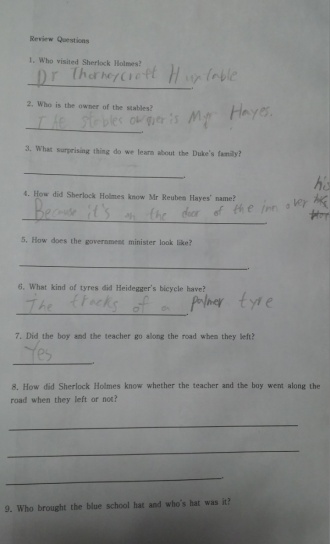 Review Questions
1. Who visited Sherlock Holmes?
Dr Thorneycroft Huxtable
2. Who is the owner of the stables?
The stables owner is Mr Hayes.
3. What surprising thing do we learn about the Duke's family?
4. How did Sherlock Holmes know Mr Reuben Hayes' name?
his
Because it's on the door of the inn over
5. How does the government minister look like?
6. What kind of tyres did Heidegger's bicycle have?
The tracks of a palmer tyre
7. Did the boy and the teacher go along the road when they left?
Yes
8. How did Sherlock Holmes know whether the teacher and the boy went along the
road when they left or not?
9. Who brought the blue school hat and who's hat was it?